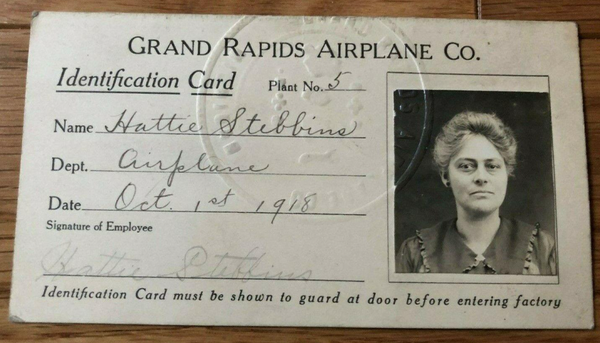 GRAND RAPIDS AIRPLANE CO.
Identification Card Plant No. 5
Name Hattie Stebbins
Dept. Airplane
Date Oct. 1st 1918
Signature of Employee
Hattie Stebbins
Identification Card must be shown to guard at door before entering factory